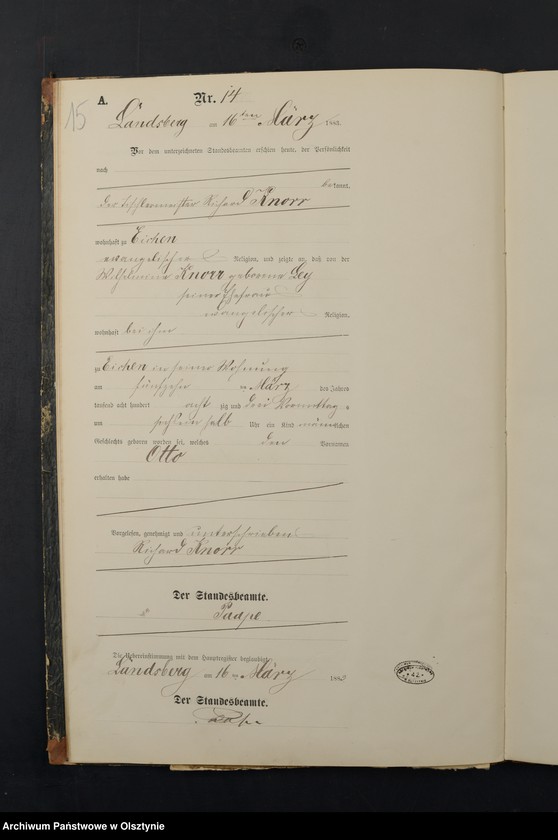 15
A.
Nr. 14
Landsberg am 16ten März 1883.
Vor dem unterzeichneten Standesbeamten erschien heute, der Persönlichkeit
nach
bekannt,
der Tischlermeister Richard Knorr
wohnhaft zu Eichen
evangelischer Religion, und zeigte an, daß von der
Wilhelmine Knorr geborene Ley
seiner Ehefrau
evangelischer Religion,
wohnhaft bei ihm
zu Eichen in seiner Wohnung
am fünfzehn ten März des Jahres
tausend acht hundert acht zig und drei Vormittag s
um sechs ein halb Uhr ein Kind männlichen
Geschlechts geboren worden sei, welches den Vornamen
Otto
erhalten habe
Vorgelesen, genehmigt und unterschrieben
Richard Knorr
Der Standesbeamte.
Die Uebereinstimmung mit dem Hauptregister beglaubigt
Landsberg am 16 ten März 1883
Der Standesbeamte.
42
Archiwum Państwowe w Olsztynie